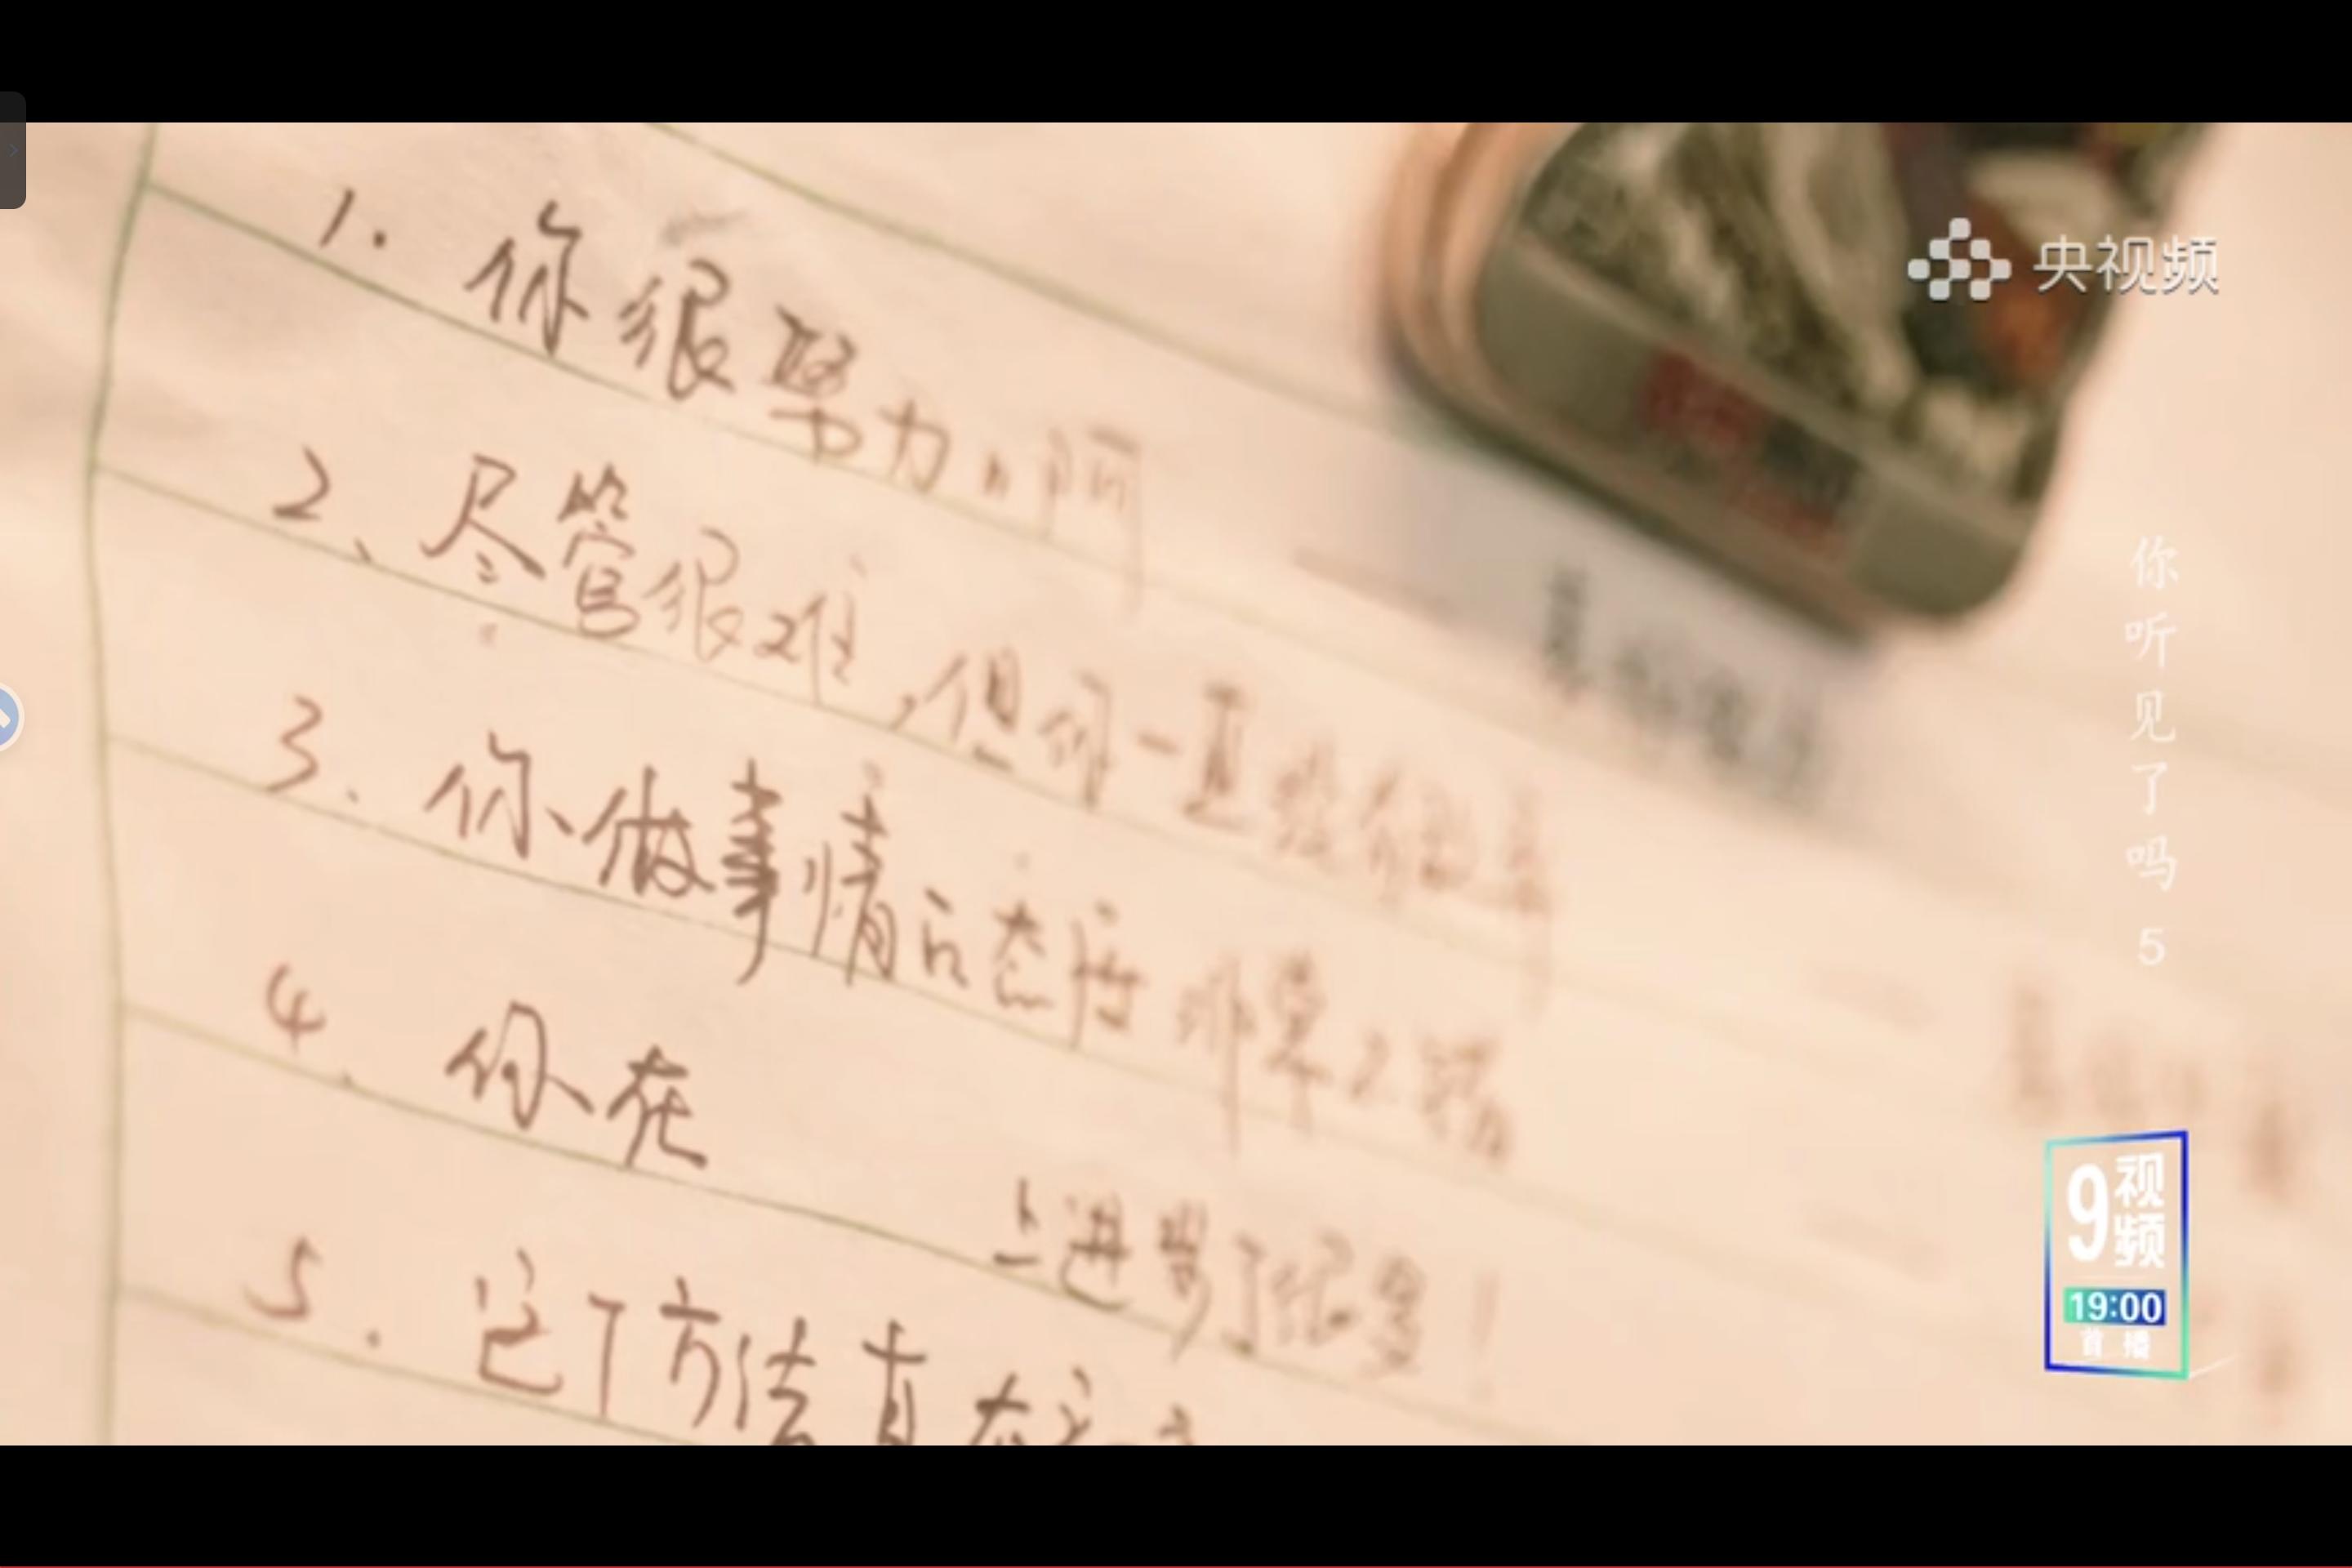 1. 你很努力啊
2、尽管很难,但你一直
3、你做事情的态度非常不错
4、你在 上进步了很多!
5.这个方法真
央视频
你听见了吗 5
9视频
19:00
首播